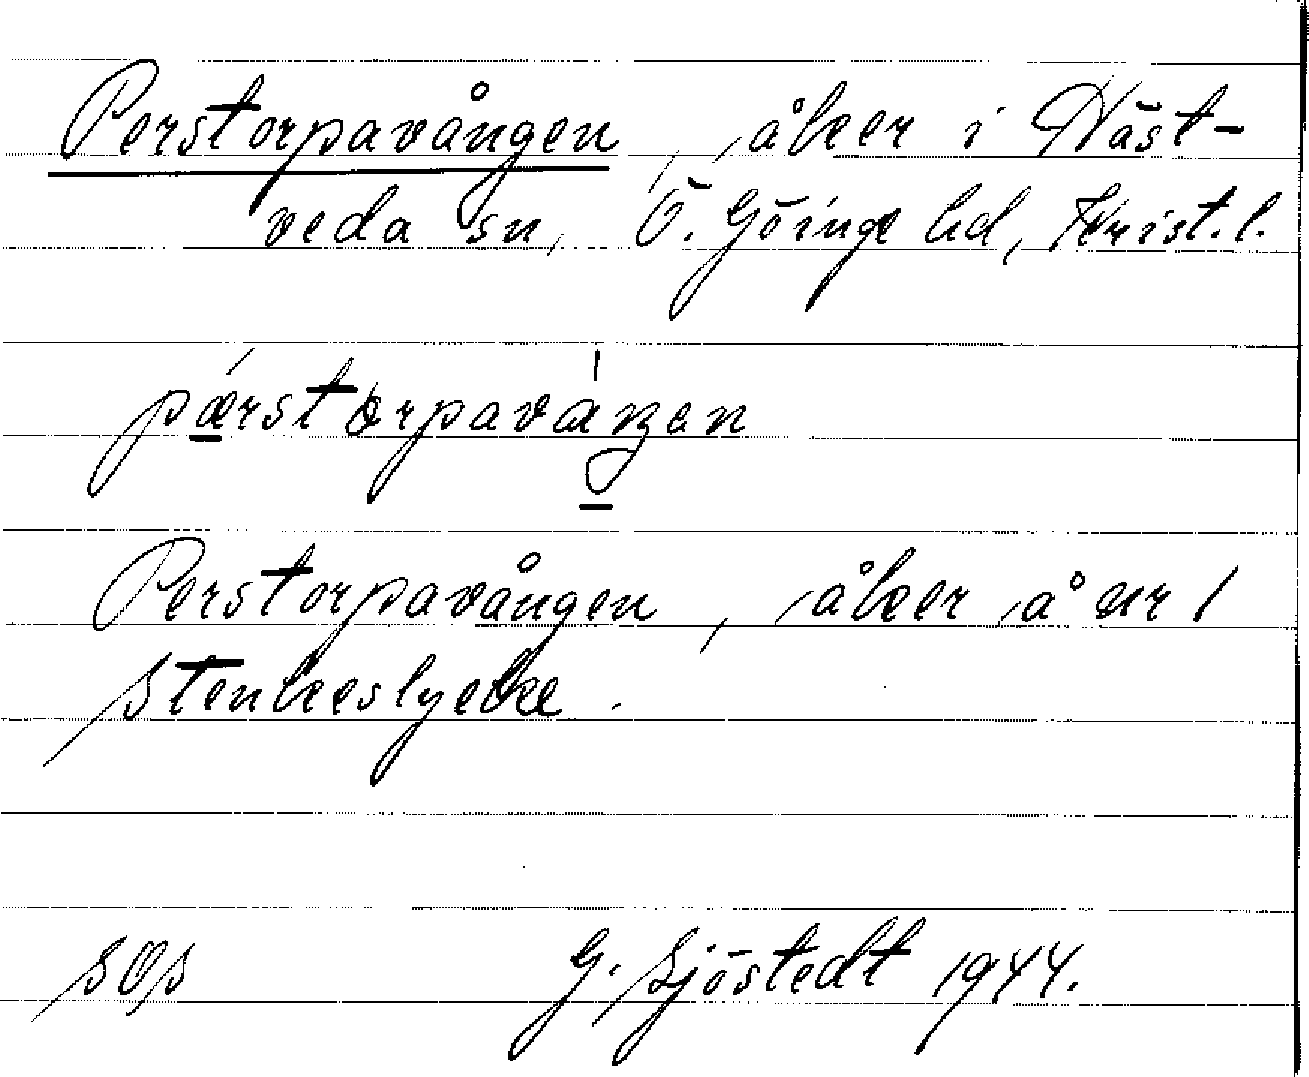 Perstorpavången, åker i Häst-
veda sn, Ö. Göinge hd, Krist. l.
pǽrstorpavaŋen
Perstorpavången, åker å nr 1
Stenkeslycke.
SOS G. Sjöstedt 1944.